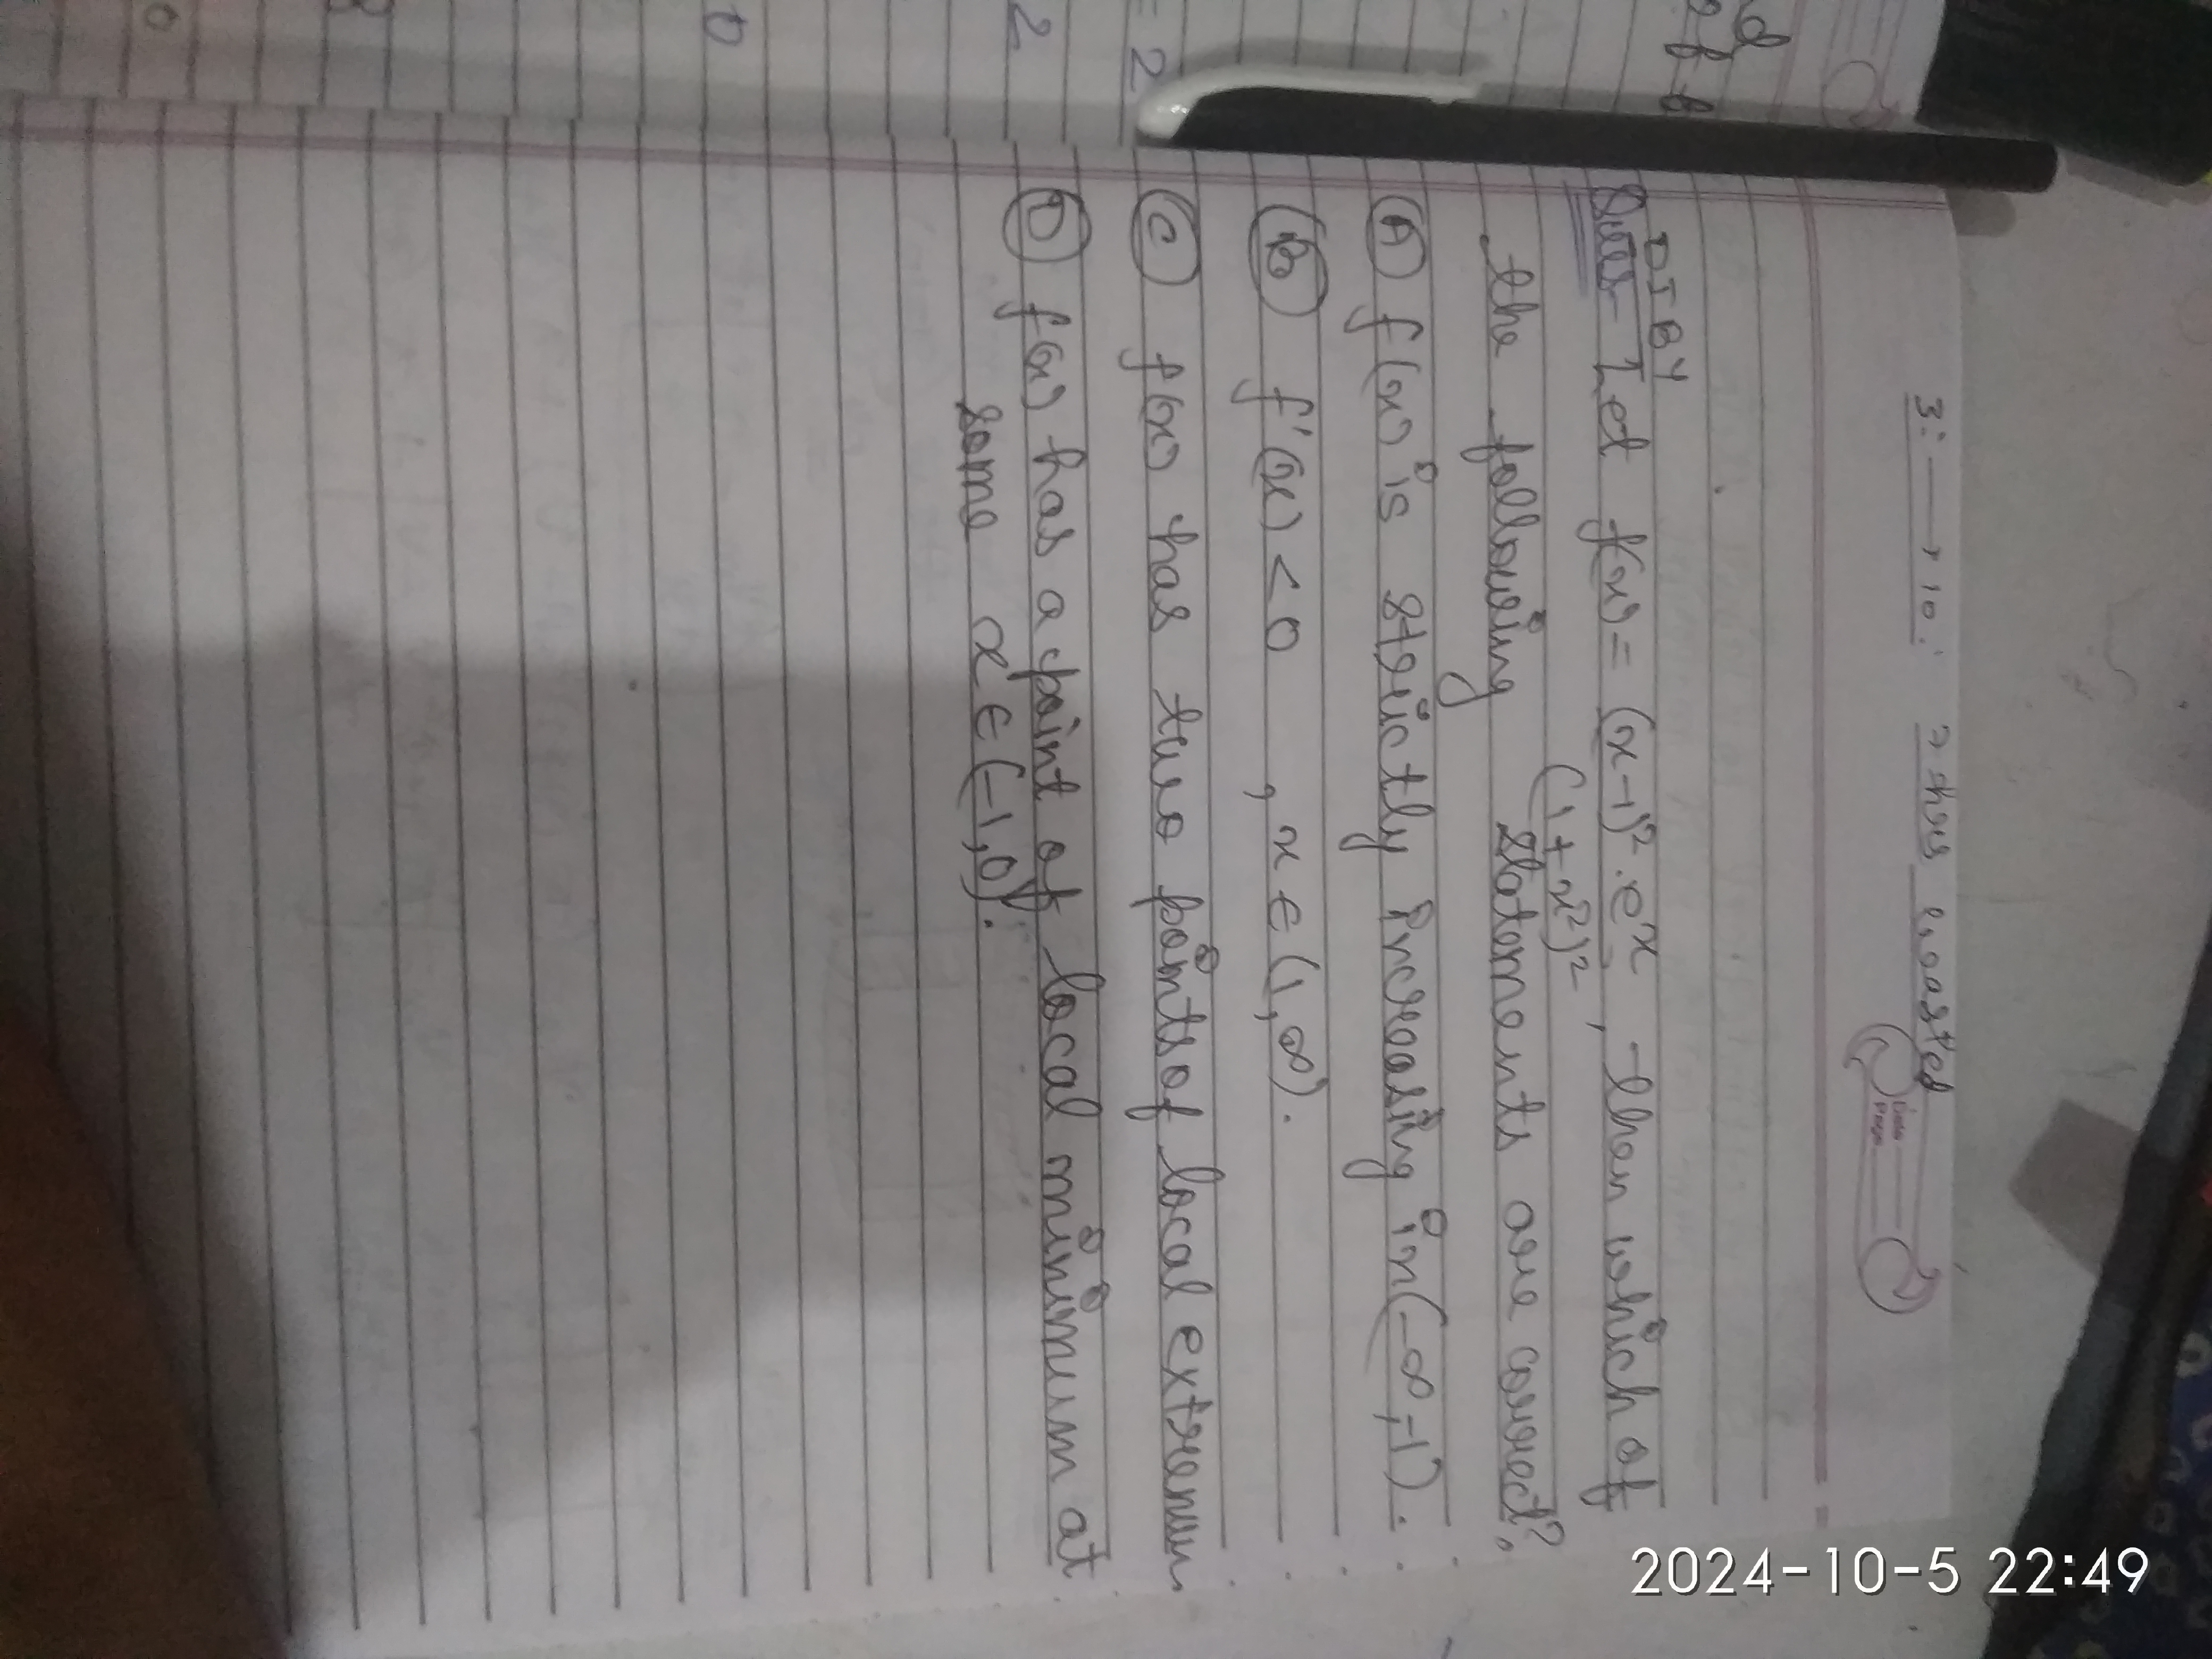 3:⟶10:
Date
Page
DIBY
Ques- Let f(x) = (x-1)². eˣ, Then which of
(1+x²)²
the following statements are correct?
(A) f(x) is strictly increasing in (-∞,-1).
(B) f'(x) < 0 , x ∈ (1,∞).
(C) f(x) has two points of local extremum
(D) f(x) has a point of local minimum at
some x ∈ (-1,0).
= 2
2
2024-10-5 22:49